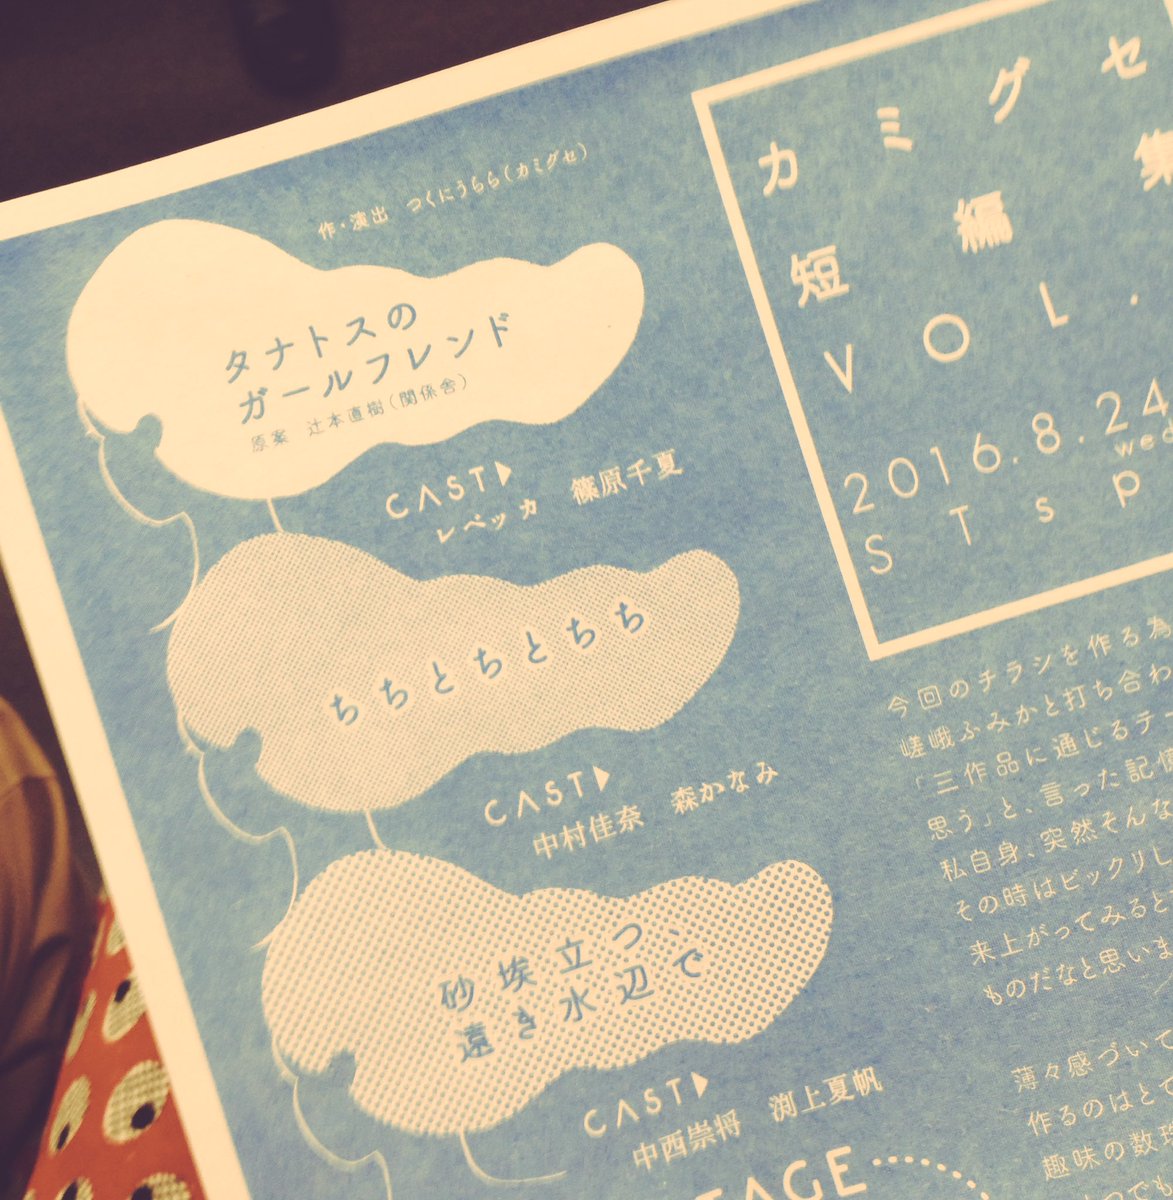 作・演出 つくにうらら(カミグセ)
タナトスの
ガールフレンド
原案 辻本直樹(関係舎)
CAST▶
レベッカ 篠原千夏
ちちとちとちち
CAST▶
中村佳奈 森かなみ
砂埃立つ、
遠き水辺で
CAST▶
中西崇将 渕上夏帆
TAGE
カミグセ
短編集
VOL.
2016.8.24
wed
STsp
今回のチラシを作る為
嵯峨ふみかと打ち合わ
「三作品に通じるテー
思う」と、言った記憶
私自身、突然そんな
その時はビックリし
来上がってみると
ものだなと思いま
薄々感づいて
作るのはとて
趣味の数
つでも